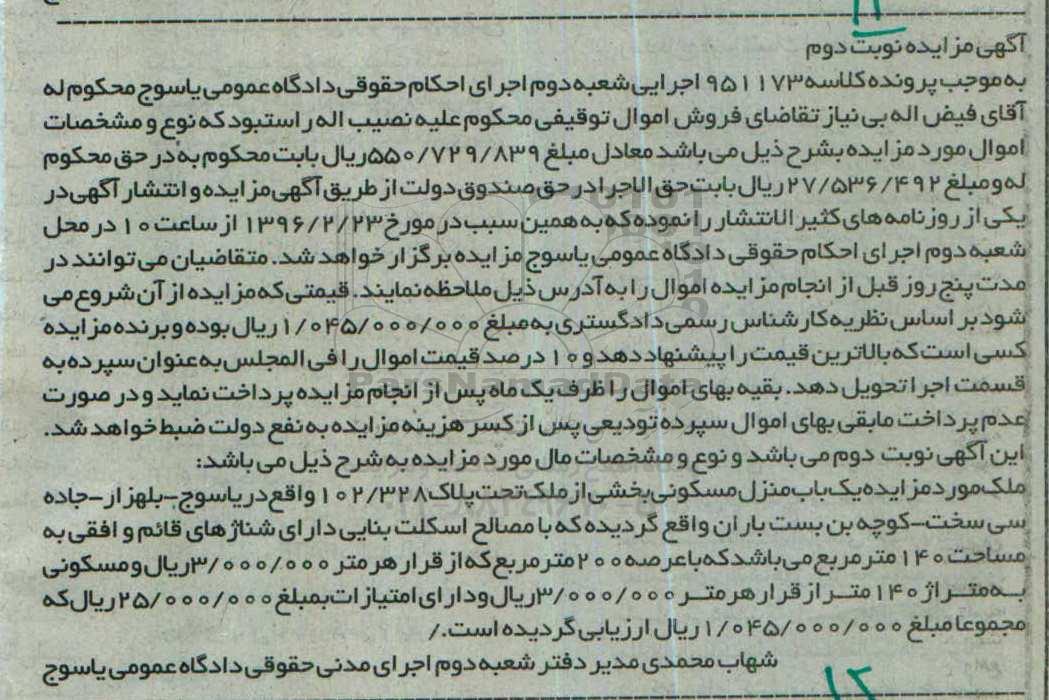 آگهی مزایده نوبت دوم
به موجب پرونده کلاسه ۹۵۱۱۷۳ اجرایی شعبه دوم اجرای احکام حقوقی دادگاه عمومی یاسوج محکوم له
آقای فیض اله بی نیاز تقاضای فروش اموال توقیفی محکوم علیه نصیب اله راستبود که نوع و مشخصات
اموال مورد مزایده بشرح ذیل می باشد معادل مبلغ ۵۵۰/۷۲۹/۸۳۹ ریال بابت محکوم به در حق محکوم
له و مبلغ ۲۷/۵۳۶/۴۹۲ ریال بابت حق الاجرا در حق صندوق دولت از طریق آگهی مزایده و انتشار آگهی در
یکی از روزنامه های کثیر الانتشار را نموده که به همین سبب در مورخ ۱۳۹۶/۲/۲۳ از ساعت ۱۰ در محل
شعبه دوم اجرای احکام حقوقی دادگاه عمومی یاسوج مزایده برگزار خواهد شد. متقاضیان می توانند در
مدت پنج روز قبل از انجام مزایده اموال را به آدرس ذیل ملاحظه نمایند. قیمتی که مزایده از آن شروع می
شود بر اساس نظریه کارشناس رسمی دادگستری به مبلغ ۱/۰۴۵/۰۰۰/۰۰۰ ریال بوده و برنده مزایده
کسی است که بالاترین قیمت را پیشنهاد دهد و ۱۰ درصد قیمت اموال را فی المجلس به عنوان سپرده به
قسمت اجرا تحویل دهد. بقیه بهای اموال را ظرف یک ماه پس از انجام مزایده پرداخت نماید و در صورت
عدم پرداخت مابقی بهای اموال سپرده تودیعی پس از کسر هزینه مزایده به نفع دولت ضبط خواهد شد.
این آگهی نوبت دوم می باشد و نوع و مشخصات مال مورد مزایده به شرح ذیل می باشد:
ملک مورد مزایده یک باب منزل مسکونی بخشی از ملک تحت پلاک ۱۰۲/۳۲۸ واقع در یاسوج-بلهزار-جاده
سی سخت-کوچه بن بست باران واقع گردیده که با مصالح اسکلت بنایی دارای شناژهای قائم و افقی به
مساحت ۱۴۰ متر مربع می باشد که با عرصه ۲۰۰ متر مربع که از قرار هر متر ۳/۰۰۰/۰۰۰ ریال و مسکونی
به متراژ ۱۴۰ متر از قرار هر متر ۳/۰۰۰/۰۰۰ ریال و دارای امتیازات بمبلغ ۲۵/۰۰۰/۰۰۰ ریال که
مجموعا مبلغ ۱/۰۴۵/۰۰۰/۰۰۰ ریال ارزیابی گردیده است./
شهاب محمدی مدیر دفتر شعبه دوم اجرای مدنی حقوقی دادگاه عمومی یاسوج
۱۲
ParsNamadData